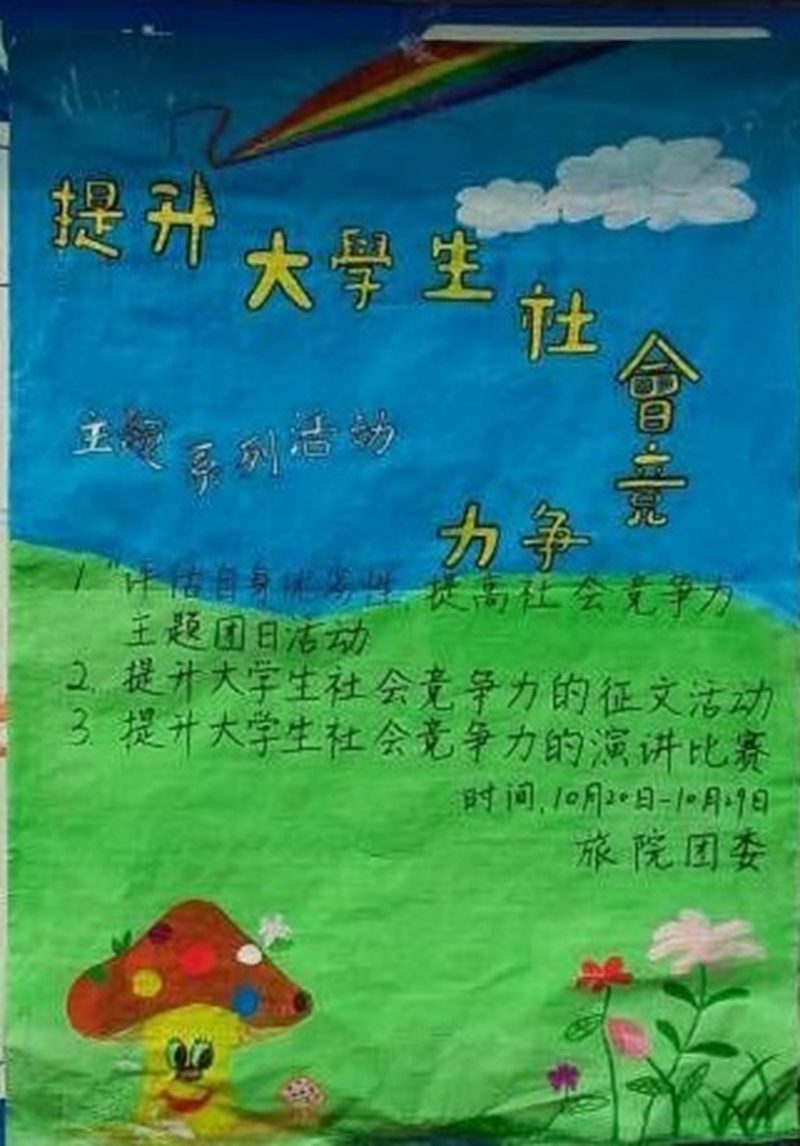 提升大學生社會竞争力
主题系列活动
1."评估自身优劣性,提高社会竞争力"
主题团日活动
2.提升大学生社会竞争力的征文活动
3.提升大学生社会竞争力的演讲比赛
时间.10月20日-10月29日
旅院团委